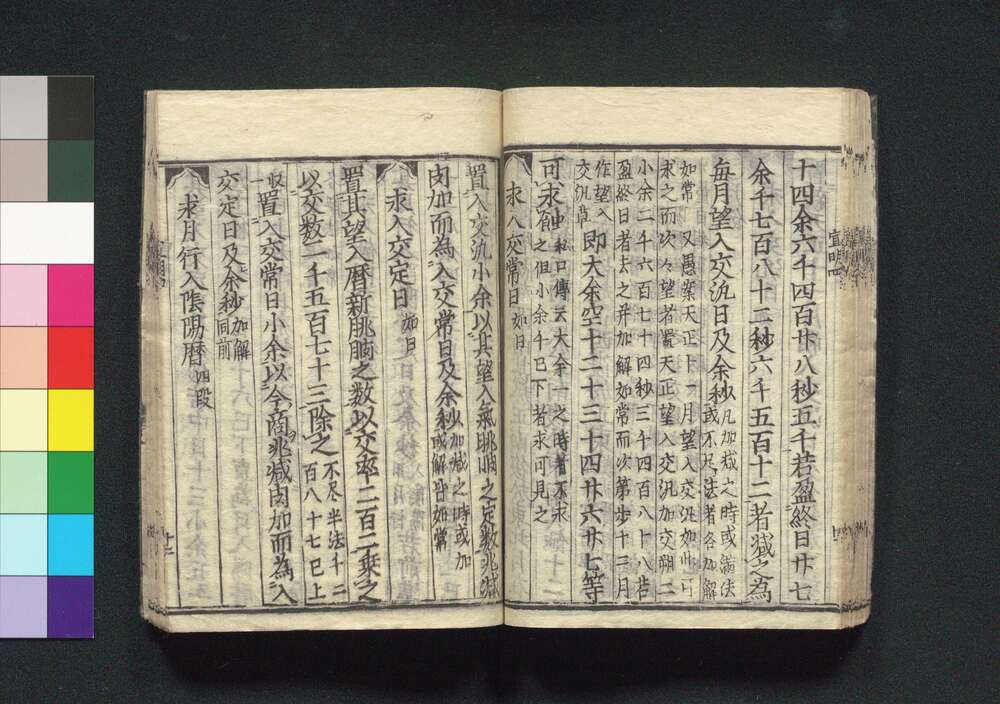 十四余六千四百廿八秒五千若盈終日廿七
余千七百八十二秒六千五百十二者減之為
毎月望入交汎日及余秒凡加減之時或満法
或不足法者各加解
如常 又愚案天正十一月望入交汎如此可
求之而次々望若置天正望入交汎加交朔二
小余二千六百七十四秒三千四百八十八若
盈終日者去之并加解如常而次第歩十三月
作望入
交汎草
即大余空十二十三十四廿六廿七等
可求蝕私口傳云大余一之時者不求
之但小余千已下者求可見之
求入交常日如日
置入交汎小余以其望入氣朓朒之定数朓減
朒加而為入交常日及余秒加減之時或加
或解并如常
求入交定日如日
置其望入暦新朓朒之数以交率二百二乗之
以交数二千五百七十三除之不尽半法千二
百八十七已上
収一
置入交常日小余以今商朓減朒加而為入
交定日及余秒加解
同前
求月行入陰陽暦四段
宣明四